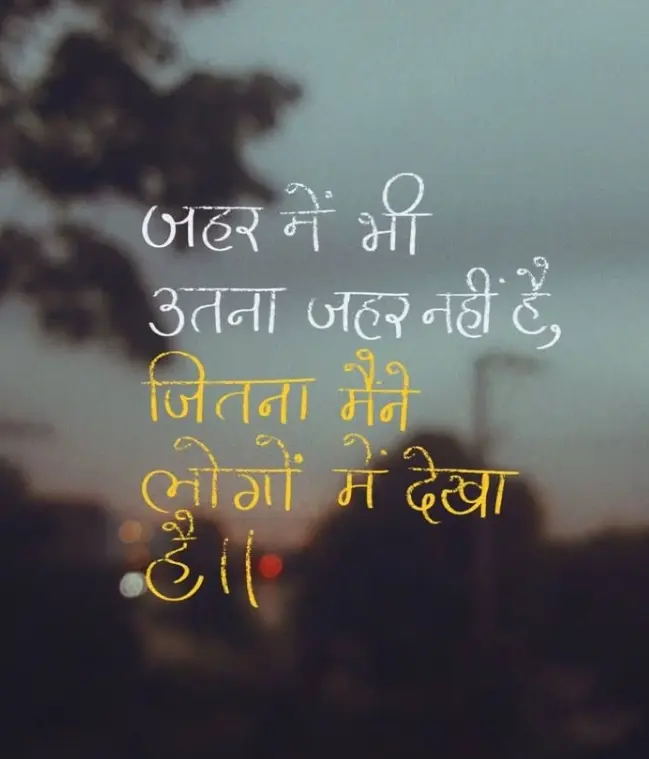 जहर में भी
उतना जहर नहीं है,
जितना मैंने
लोगों में देखा
है।।